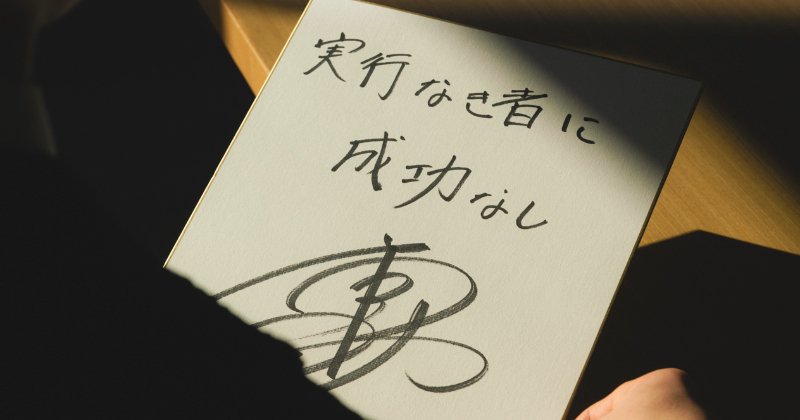 実行なき者に
成功なし